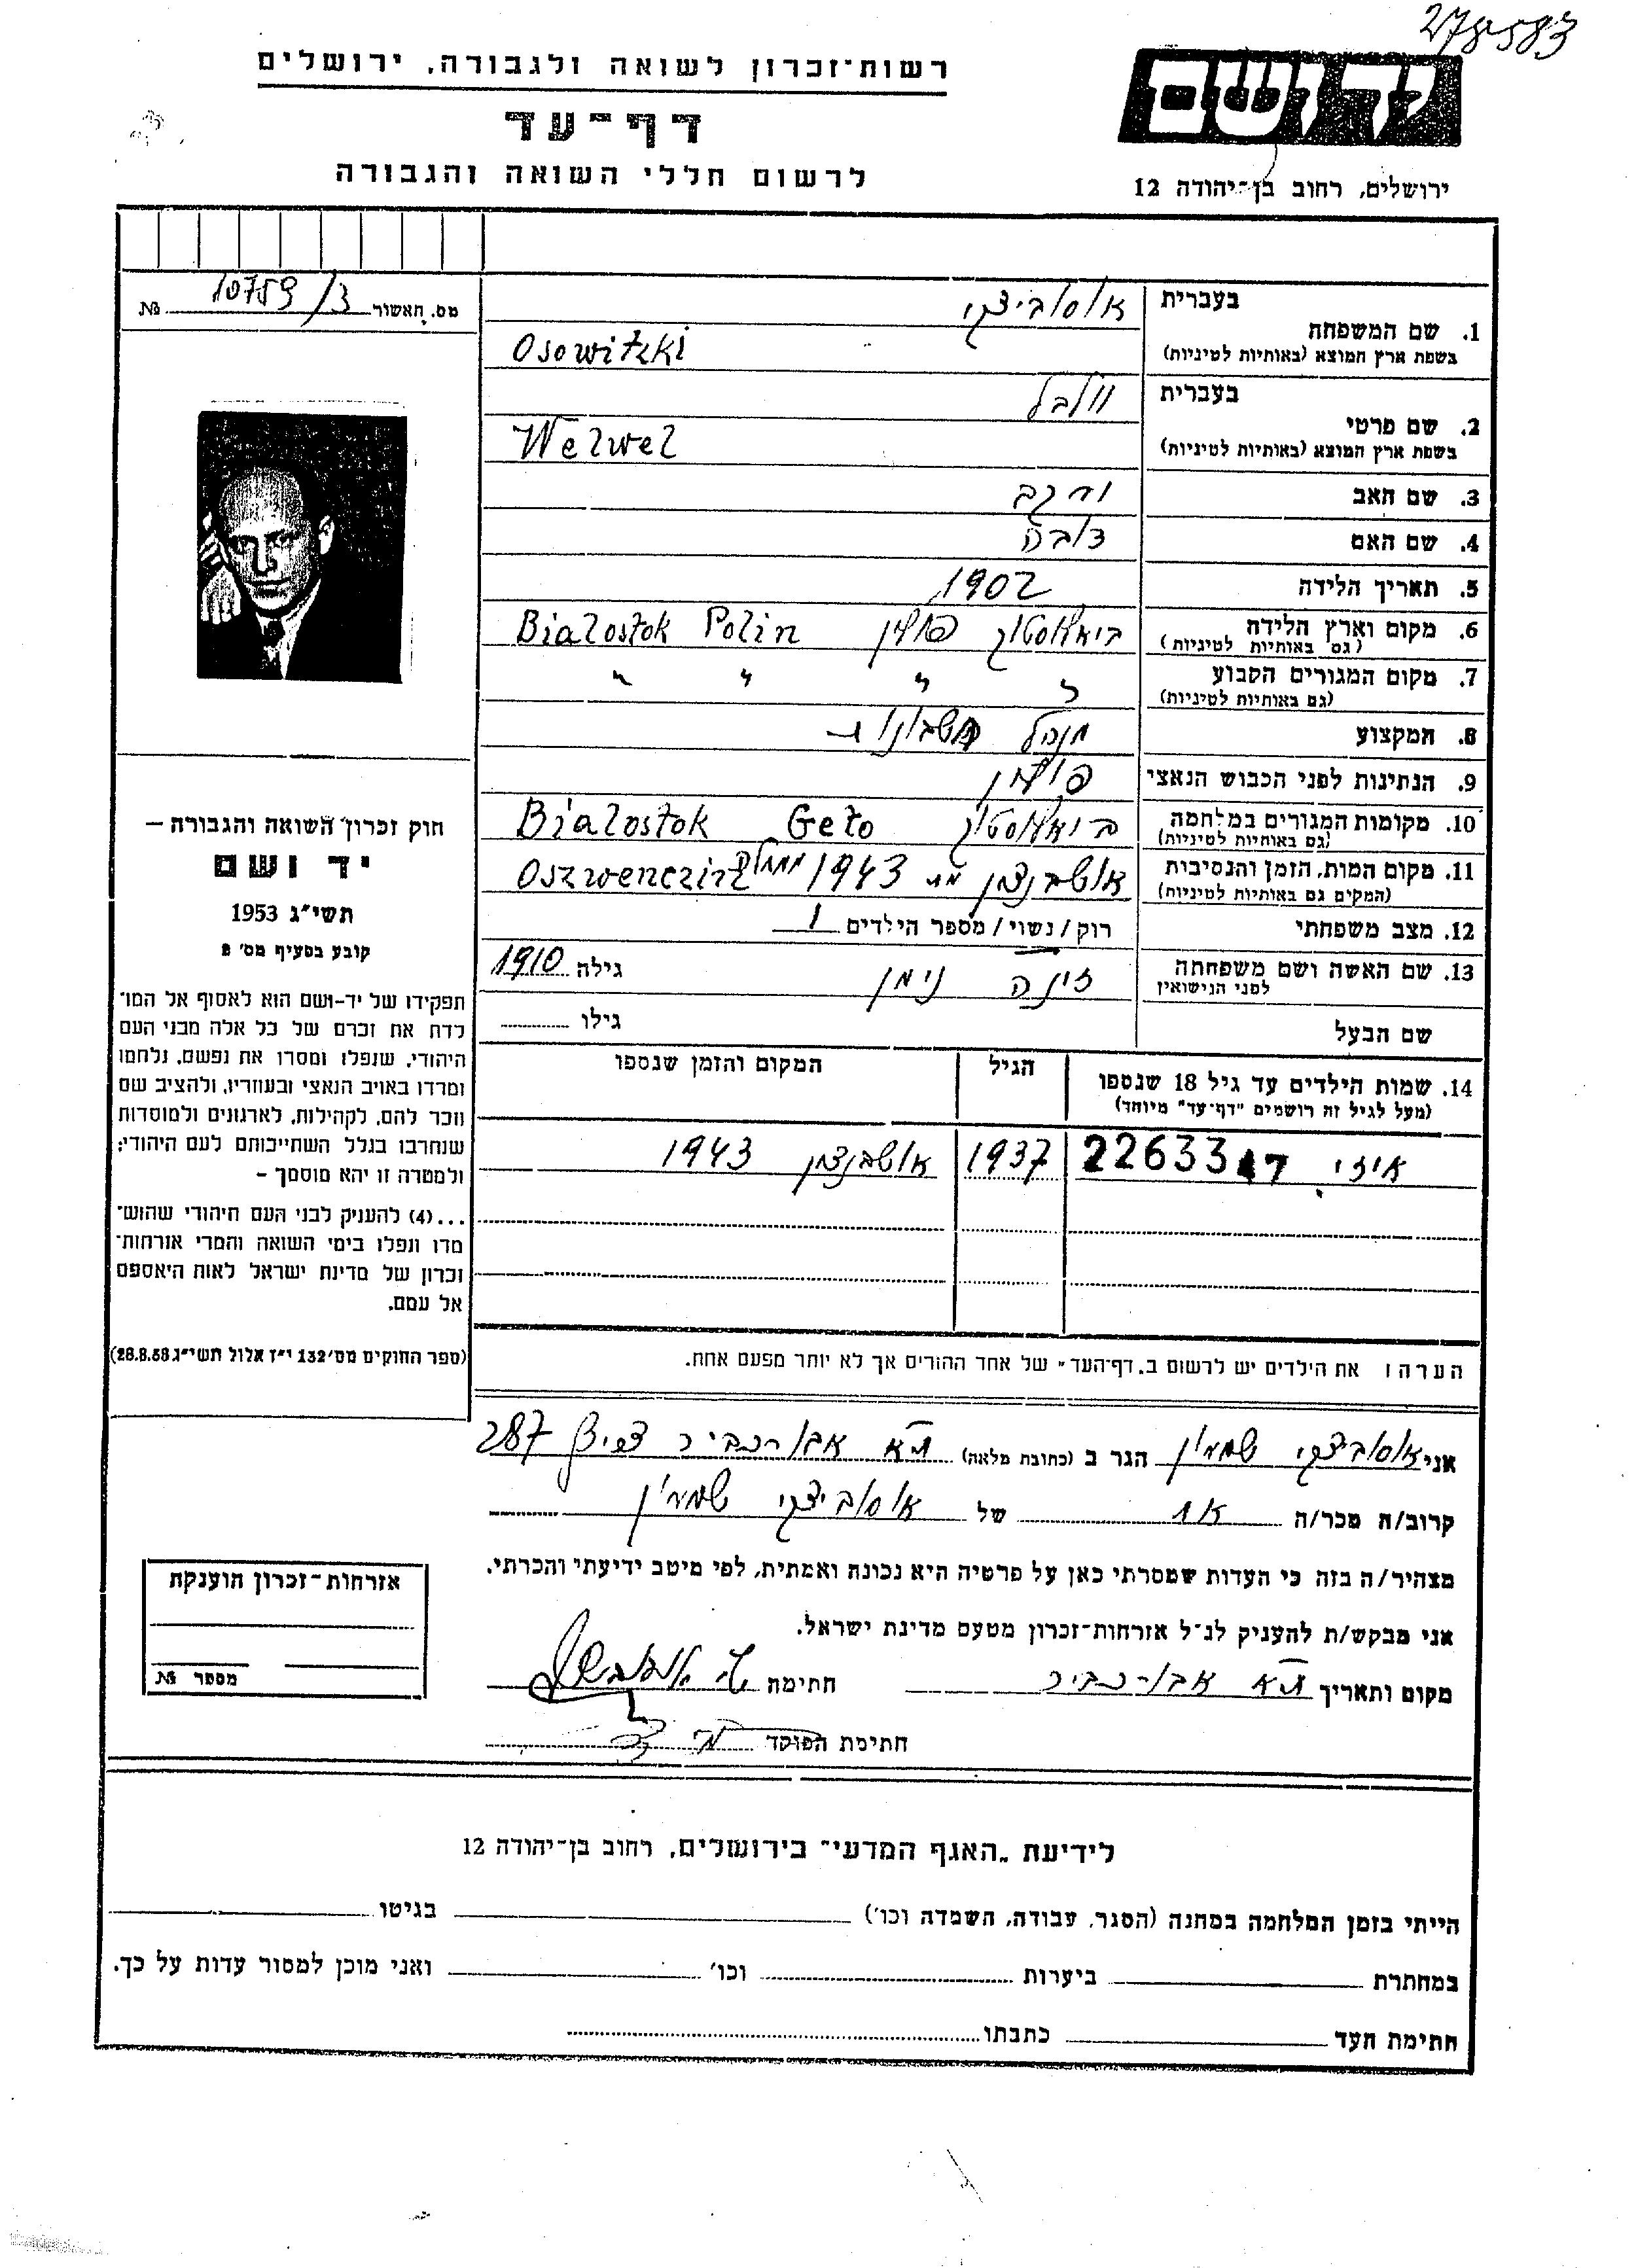 278583
רשות־זכרון לשואה ולגבורה, ירושלים
דף־עד
לרשום חללי השואה והגבורה
יד ושם
ירושלים, רחוב בן־יהודה 12
מס. האשור 3/10759 №
בעברית אוסוביצקי
1. שם המשפחה
בשפת ארץ המוצא (באותיות לטיניות) Osowitzki
בעברית וולבל
2. שם פרטי
בשפת ארץ המוצא (באותיות לטיניות) Welwel
3. שם האב
4. שם האם צובה
5. תאריך הלידה 1902
6. מקום וארץ הלידה ביאליסטוק פולין Bialostok Polin
(גם באותיות לטיניות)
7. מקום המגורים הקבוע " " " "
(גם באותיות לטיניות)
8. המקצוע מנהל חשבונות
9. הנתינות לפני הכבוש הנאצי פולין
10. מקומות המגורים במלחמה ביאליסטוק Bialostok Geto
(גם באותיות לטיניות)
11. מקום המות, הזמן והנסיבות אושבנצין מת 1943 ממחלה Oszwenczin
(המקום גם באותיות לטיניות)
12. מצב משפחתי רוק / נשוי / מספר הילדים 1
13. שם האשה ושם משפחתה זינה נימן גילה 1910
לפני הנישואין
שם הבעל גילו
14. שמות הילדים עד גיל 18 שנספו הגיל המקום והזמן שנספו
(מעל לגיל זה רושמים "דף־עד" מיוחד)
איזי 2263347 1937 אושבנצין 1943
חוק זכרון השואה והגבורה —
יד ושם
תשי״ג 1953
קובע בסעיף מס׳ 2
תפקידו של יד־ושם הוא לאסוף אל המו־
לדת את זכרם של כל אלה מבני העם
היהודי, שנפלו ומסרו את נפשם, נלחמו
ומרדו באויב הנאצי ובעוזריו, ולהציב שם
וזכר להם, לקהילות, לארגונים ולמוסדות
שנחרבו בגלל השתייכותם לעם היהודי;
ולמטרה זו יהא מוסמך —
...(4) להעניק לבני העם היהודי שהוש־
מדו ונפלו בימי השואה והמרי אזרחות־
זכרון של מדינת ישראל לאות היאספם
אל עמם.
(ספר החוקים מס׳ 132 י״ז אלול תשי״ג 28.8.53)
הערה: את הילדים יש לרשום ב„דף־העד" של אחד ההורים אך לא יותר מפעם אחת.
אני אוסוביצקי שמעון הגר ב (כתובת מלאה) ת״א אבו־כביר צריף 287
קרוב/ה מכר/ה אח של אוסוביצקי שמעון
מצהיר/ה בזה כי העדות שמסרתי כאן על פרטיה היא נכונה ואמתית, לפי מיטב ידיעתי והכרתי.
אני מבקש/ת להעניק לנ״ל אזרחות־זכרון מטעם מדינת ישראל.
מקום ותאריך ת״א אבו־כביר חתימה
חתימת הפוקד
אזרחות־זכרון הוענקה
מספר №
לידיעת „האגף המדעי" בירושלים, רחוב בן־יהודה 12
הייתי בזמן המלחמה במחנה (הסגר, עבודה, השמדה וכו׳) בגיטו
במחתרת ביערות וכו׳ ואני מוכן למסור עדות על כך.
חתימת העד כתבתו